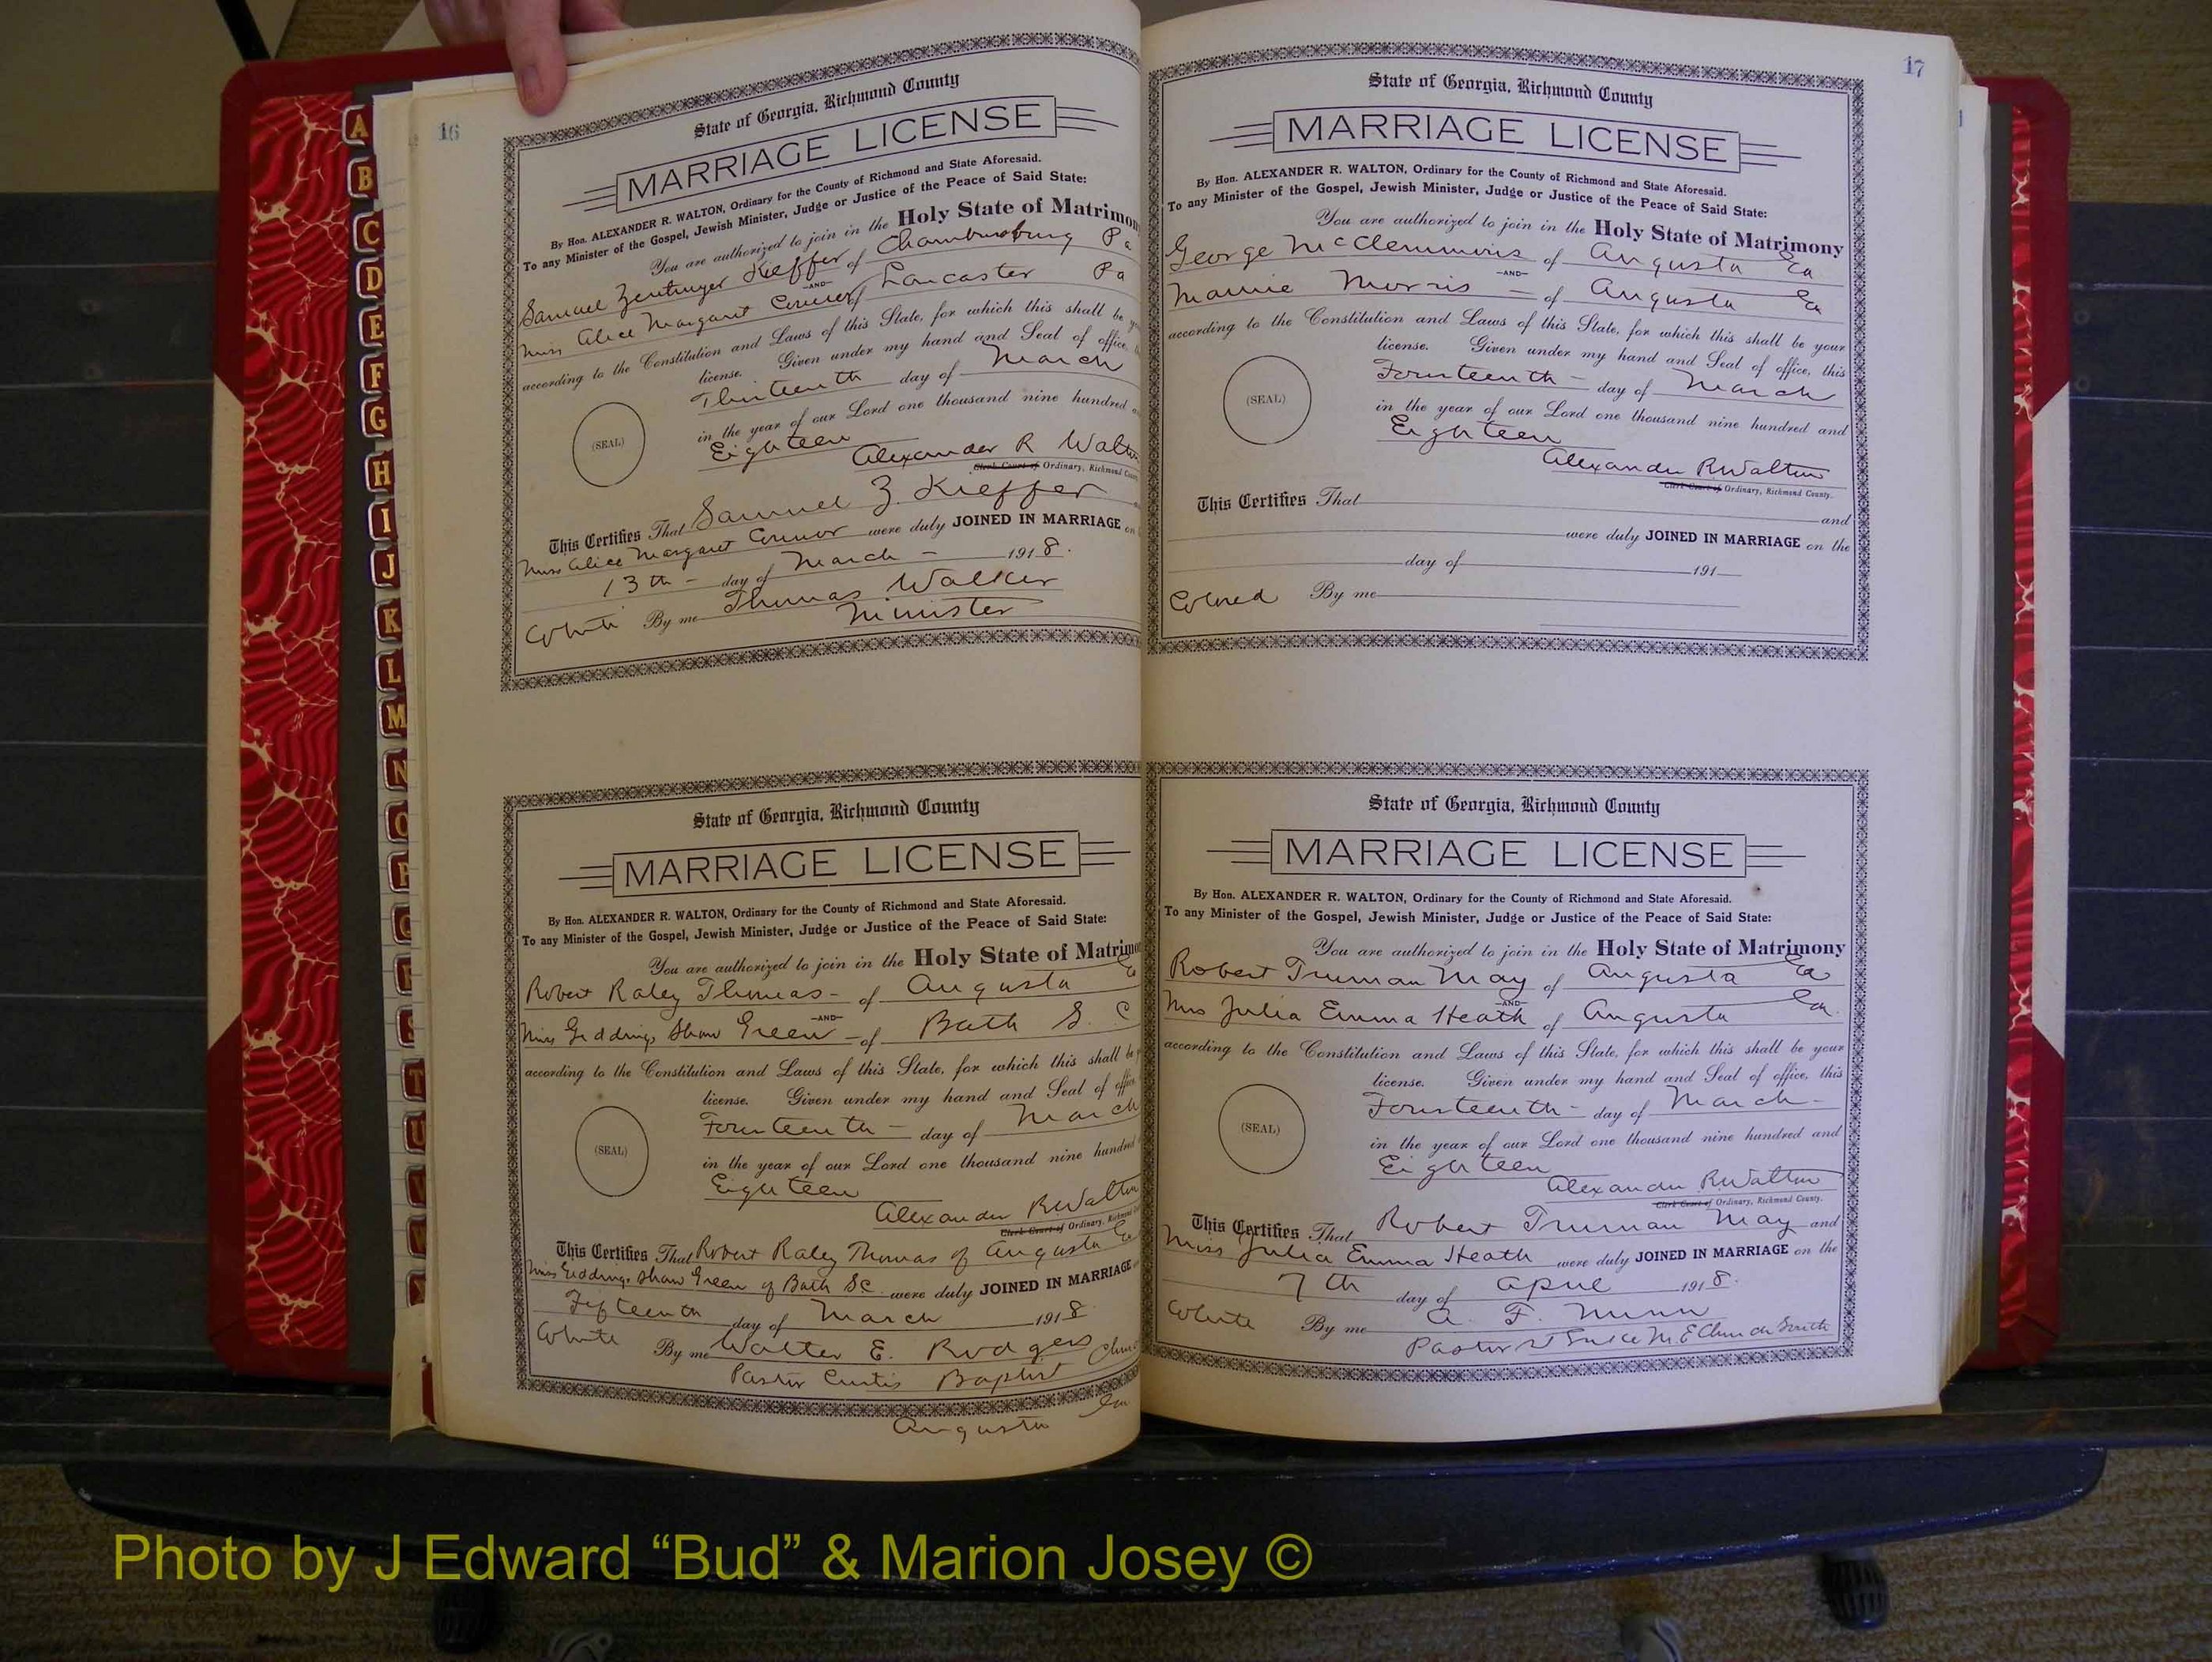 16
State of Georgia, Richmond County
MARRIAGE LICENSE
By Hon. ALEXANDER R. WALTON, Ordinary for the County of Richmond and State Aforesaid.
To any Minister of the Gospel, Jewish Minister, Judge or Justice of the Peace of Said State:
You are authorized to join in the Holy State of Matrimon
Samuel Kieffer of Chambersburg Pa
—AND—
Miss Alice Margaret Connor of Lancaster Pa
according to the Constitution and Laws of this State, for which this shall be
license. Given under my hand and Seal of office,
Thirteenth day of March
(SEAL)
in the year of our Lord one thousand nine hundred
Eighteen
Alexander R Walton
Clerk Court of Ordinary, Richmond
This Certifies That Samuel Z. Kieffer
Miss Alice Margaret Connor were duly JOINED IN MARRIAGE on
13th – day of March – 1918.
White By me Thomas Walker
Minister
State of Georgia, Richmond County
MARRIAGE LICENSE
By Hon. ALEXANDER R. WALTON, Ordinary for the County of Richmond and State Aforesaid.
To any Minister of the Gospel, Jewish Minister, Judge or Justice of the Peace of Said State:
You are authorized to join in the Holy State of Matrimo
Robert Raley Thomas – of Augusta Ga
—AND—
Miss Giddings Shaw Green – of Bath S. C
according to the Constitution and Laws of this State, for which this shall be
license. Given under my hand and Seal of office,
Fourteenth – day of March
(SEAL)
in the year of our Lord one thousand nine hundred
Eighteen
Alexander R Walton
Clerk Court of Ordinary, Richmond
This Certifies That Robert Raley Thomas of Augusta Ga
Miss Giddings Shaw Green of Bath SC were duly JOINED IN MARRIAGE
Fifteenth day of March 1918
White By me Walter E. Rodgers
Pastor Curtis Baptist Church
Augusta Ga
17
State of Georgia, Richmond County
MARRIAGE LICENSE
By Hon. ALEXANDER R. WALTON, Ordinary for the County of Richmond and State Aforesaid.
To any Minister of the Gospel, Jewish Minister, Judge or Justice of the Peace of Said State:
You are authorized to join in the Holy State of Matrimony
George McClemmons of Augusta Ga
—AND—
Mamie Morris – of Augusta Ga
according to the Constitution and Laws of this State, for which this shall be your
license. Given under my hand and Seal of office, this
Fourteenth – day of March
(SEAL)
in the year of our Lord one thousand nine hundred and
Eighteen
Alexander R Walton
Clerk Court of Ordinary, Richmond County.
This Certifies That and
were duly JOINED IN MARRIAGE on the
day of 191
Colored By me
State of Georgia, Richmond County
MARRIAGE LICENSE
By Hon. ALEXANDER R. WALTON, Ordinary for the County of Richmond and State Aforesaid.
To any Minister of the Gospel, Jewish Minister, Judge or Justice of the Peace of Said State:
You are authorized to join in the Holy State of Matrimony
Robert Truman May of Augusta Ga
—AND—
Miss Julia Emma Heath of Augusta Ga.
according to the Constitution and Laws of this State, for which this shall be your
license. Given under my hand and Seal of office, this
Fourteenth – day of March –
(SEAL)
in the year of our Lord one thousand nine hundred and
Eighteen
Alexander R Walton
Clerk Court of Ordinary, Richmond County.
This Certifies That Robert Truman May and
Miss Julia Emma Heath were duly JOINED IN MARRIAGE on the
7th day of April 1918.
White By me A. F. Nunn
Pastor St Luke M. E Church South
A
B
C
D
E
F
G
H
I
J
K
L
M
N
O
P
Q
R
S
T
U
V
W
Photo by J Edward “Bud” & Marion Josey ©